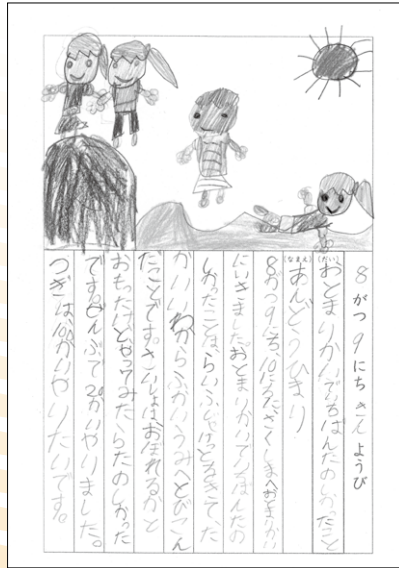 8がつ9にち きんようび
(だい)
おとまりかいでいちばんたのしかったこと
(なまえ)
あんどうひまり
8がつ9にち、10にち、ささくしまへおとまりかい
にいきました。おとまりかいでいちばんたの
しかったことは、らいふじゃけっとをきて、た
かいいわからふかいうみへとびこん
だことです。さいしょは、おぼれるかと
おもったけどやってみたらたのしかった
です。ぜんぶで20かいやりました。
つぎは、100かいやりたいです。